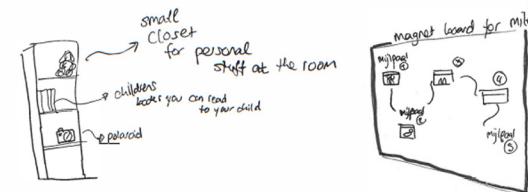 small
closet
for personal
stuff at the room
childrens
books you can read
to your child
polaroid
magnet board for
mijlpaal
1
mijlpaal
2
3
4
mijlpaal
5